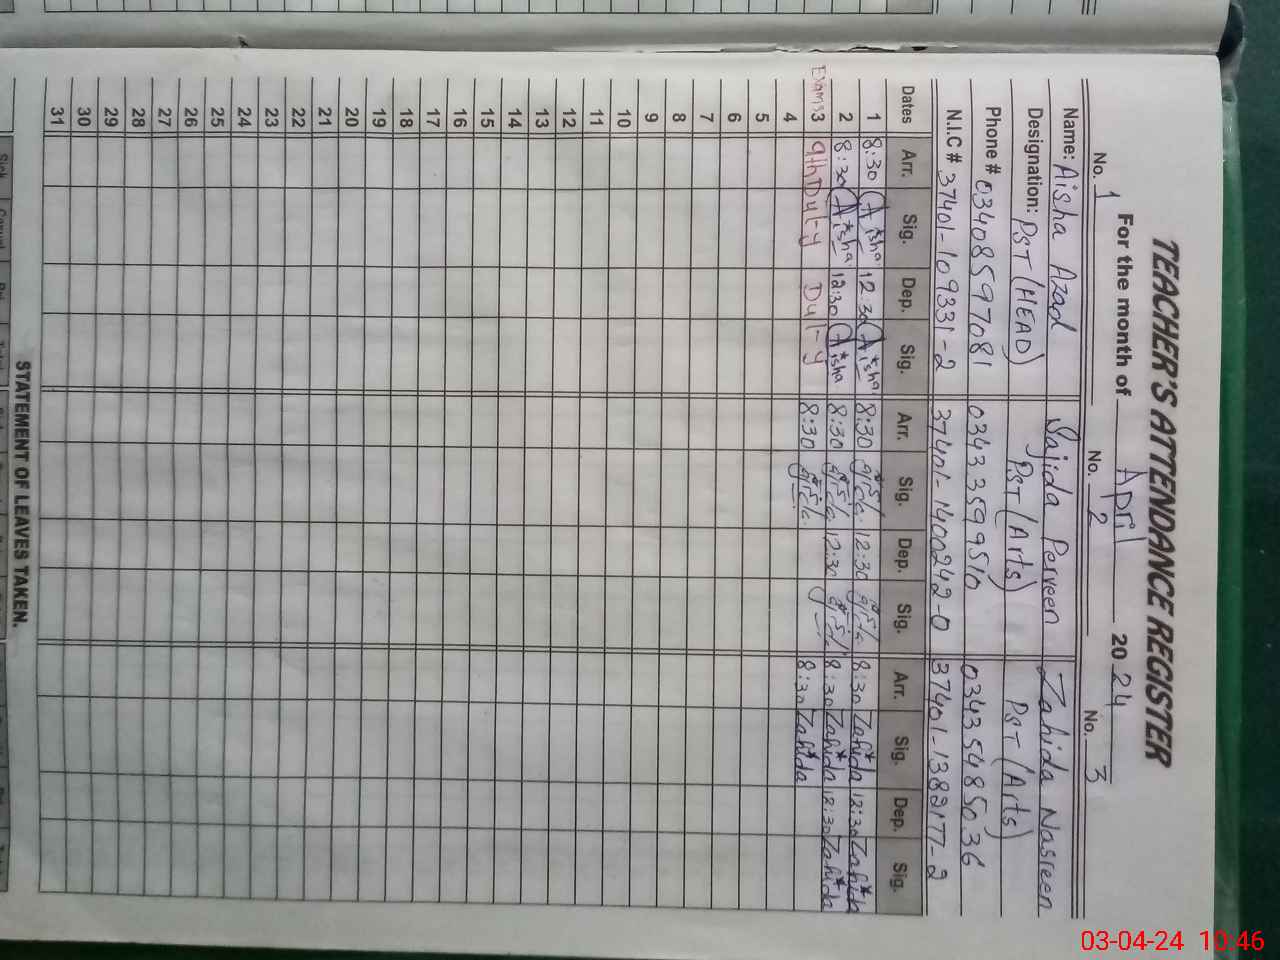 TEACHER'S ATTENDANCE REGISTER
For the month of April 2024
No. 1 No. 2 No. 3
Name: Aisha Azad Sajida Perveen Zahida Nasreen
Designation: PST (HEAD) PST (Arts) PST (Arts)
Phone # 03408597081 03433599510 03435485036
N.I.C # 37401-109331-2 37401-1400242-0 37401-1382177-2
Dates Arr. Sig. Dep. Sig. Arr. Sig. Dep. Sig. Arr. Sig. Dep. Sig.
1 8:30 Aisha 12:30 Aisha 8:30 12:30 8:30 Zahida 12:30 Zahida
2 8:30 Aisha 12:30 Aisha 8:30 12:30 8:30 Zahida 12:30 Zahida
Exams 3 9th Duty Duty 8:30 8:30 Zahida
4
5
6
7
8
9
10
11
12
13
14
15
16
17
18
19
20
21
22
23
24
25
26
27
28
29
30
31
STATEMENT OF LEAVES TAKEN.
03-04-24 10:46